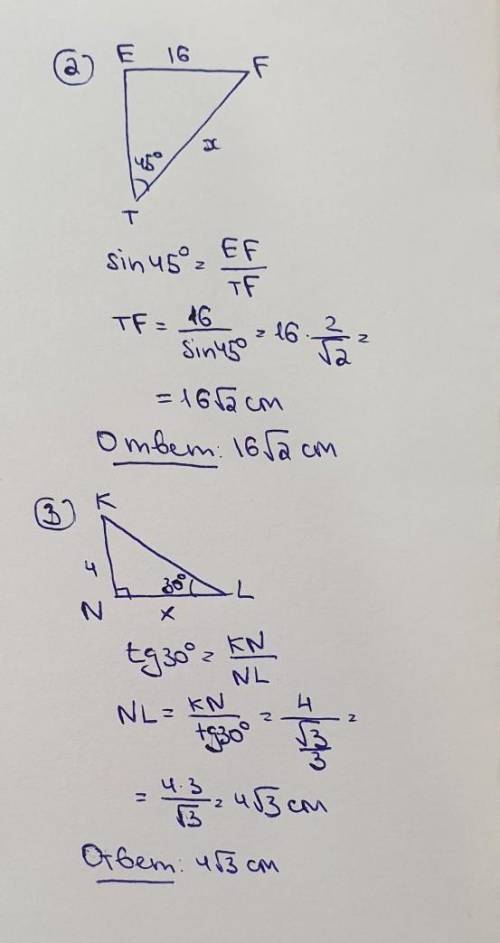 2
E 16 F
x
45°
T
sin45° = EF/TF
TF = 16/sin45° = 16 · 2/√2 =
= 16√2 см
Ответ: 16√2 см
3
K
4
30°
N x L
tg30° = KN/NL
NL = KN/tg30° = 4/(√3/3) =
= 4·3/√3 = 4√3 см
Ответ: 4√3 см